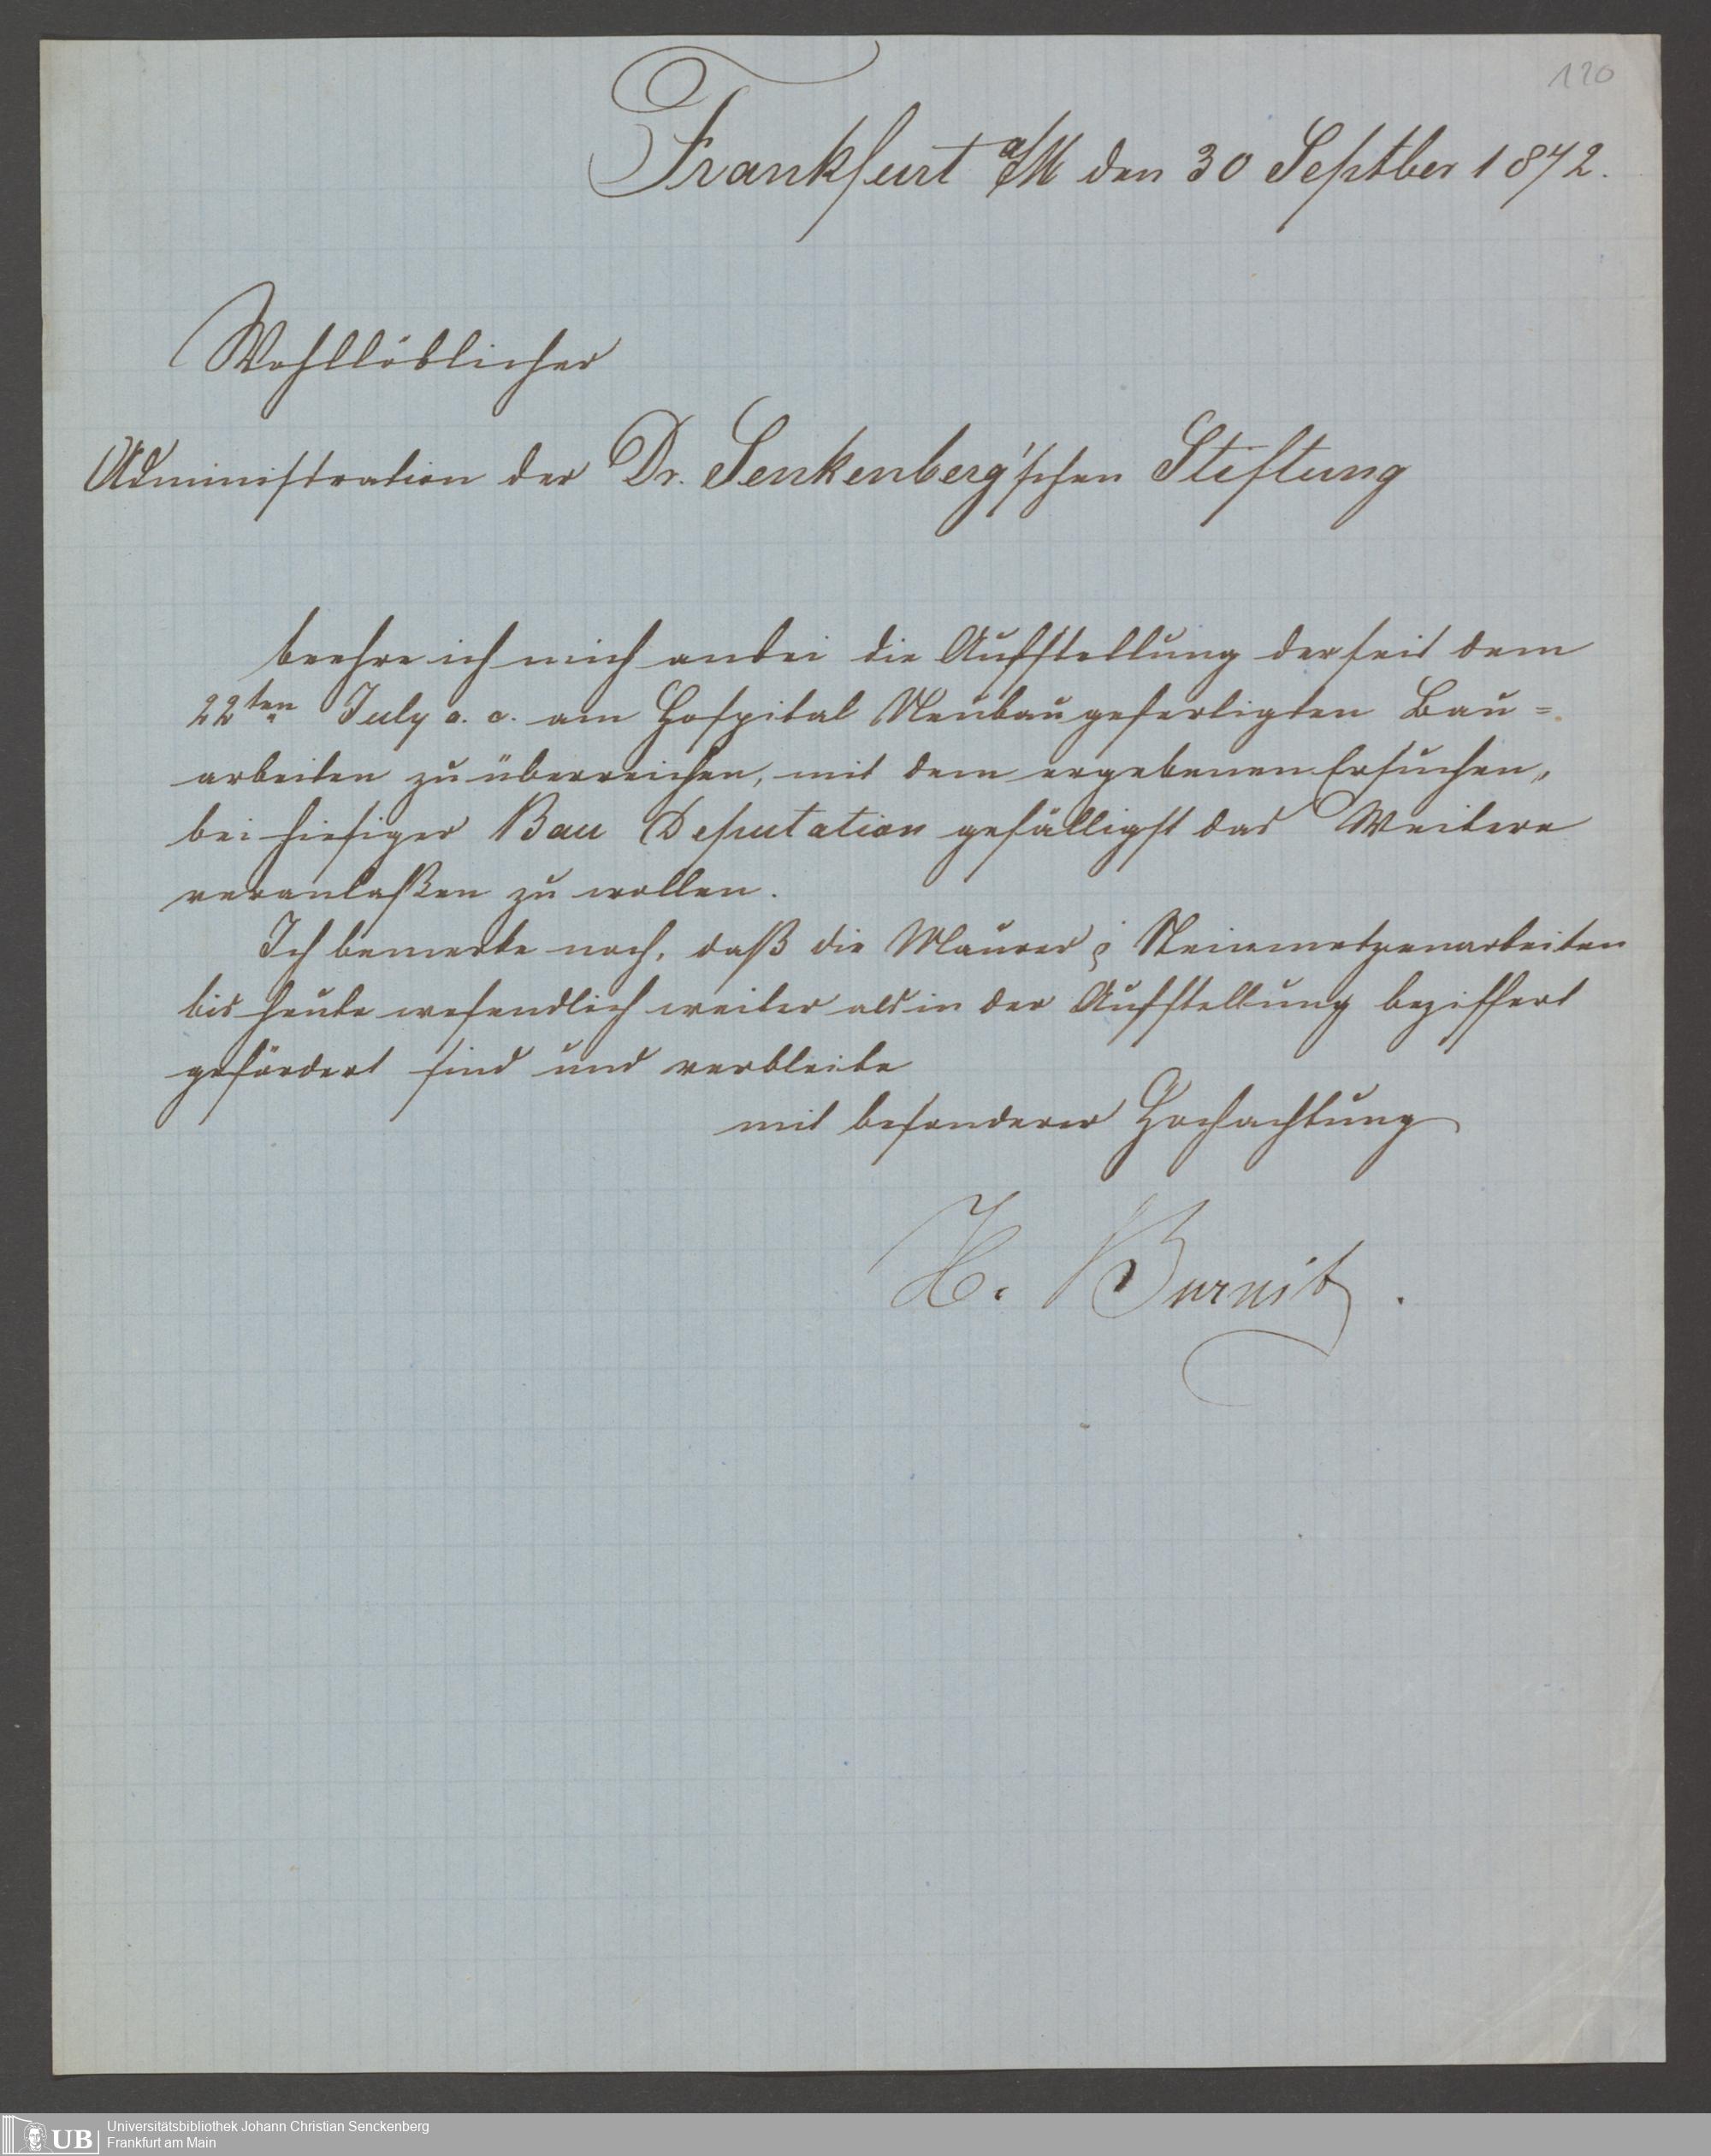 120
Frankfurt a/M den 30 Septber 1872.
Wohllöblicher
Administration der Dr. Senkenberg'schen Stiftung
beehre ich mich anbei die Aufstellung der seit dem
22ten July a. c. am Hospital Neubau gefertigten Bau=
arbeiten zu überreichen, mit dem ergebenen Ersuchen,
bei hiesiger Bau Deputation gefälligst das Weitere
veranlaßen zu wollen.
Ich bemerke noch, daß die Maurer & Steinmetzenarbeiten
bis heute wesendlich weiter als in der Aufstellung beziffert
gefördert sind und verbleibe
mit besonderer Hochachtung
H. Burnitz.
UB
Universitätsbibliothek Johann Christian Senckenberg
Frankfurt am Main